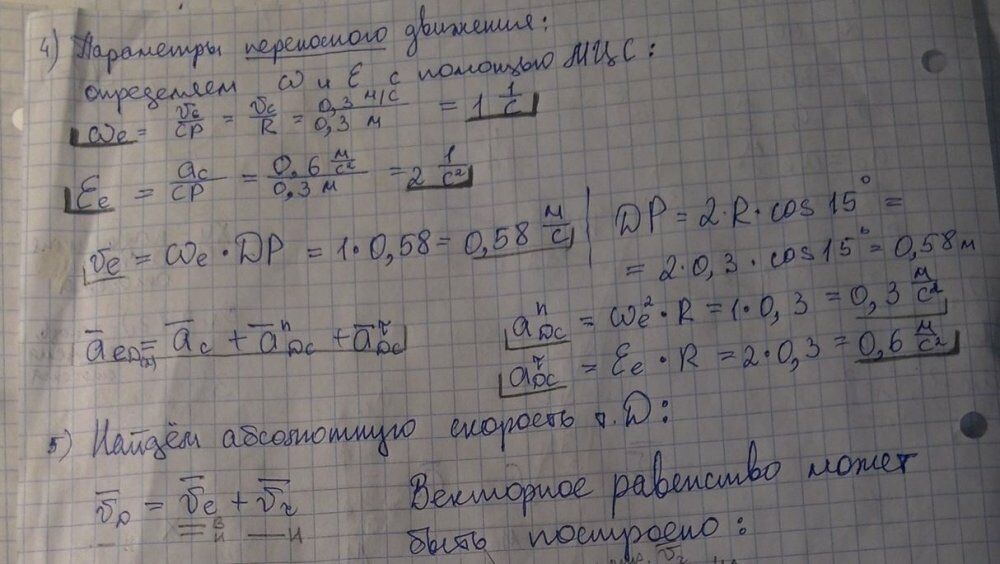 4) Параметры переносного движения:
определяем ω и ε с помощью МЦС:
ωe = vc/CP = vc/R = 0,3 м/с / 0,3 м = 1 1/с
εe = ac/CP = 0,6 м/с² / 0,3 м = 2 1/с²
ve = ωe · DP = 1·0,58 = 0,58 м/с
DP = 2·R·cos 15° =
= 2·0,3·cos 15° = 0,58 м
āeD = āc + āⁿDC + āᵗDC
aⁿDC = ωe²·R = 1·0,3 = 0,3 м/с²
aᵗDC = εe·R = 2·0,3 = 0,6 м/с²
5) Найдём абсолютную скорость т. D:
v̄D = v̄e + v̄r
Векторное равенство может
быть построено: